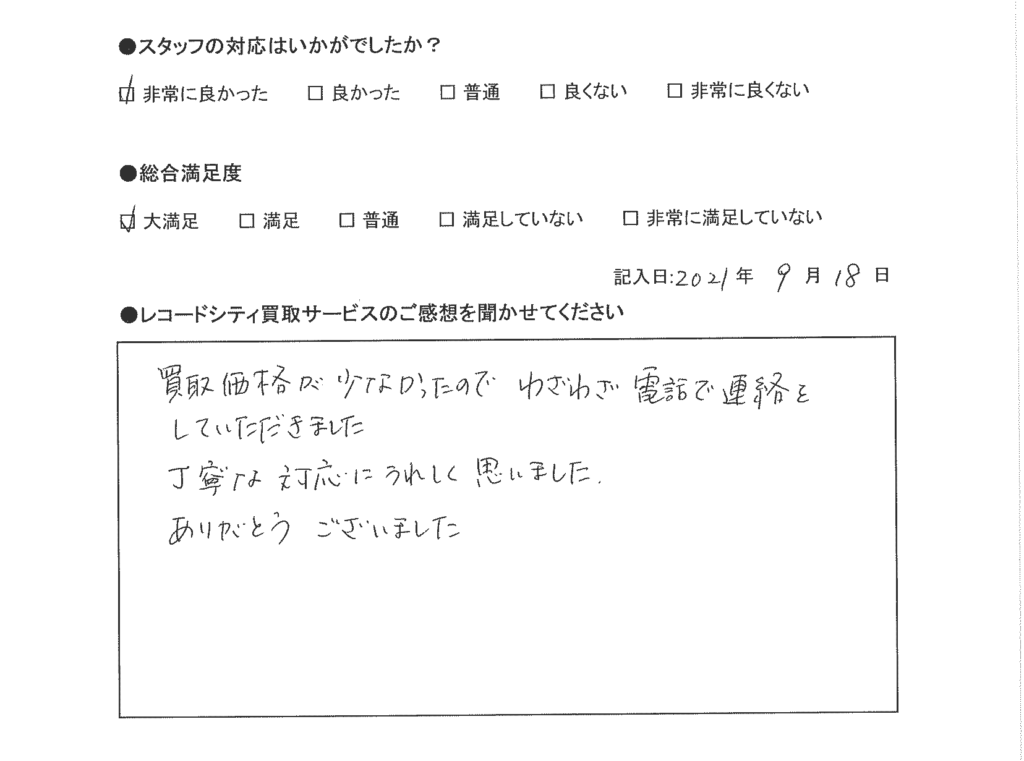 ●スタッフの対応はいかがでしたか？
☑ 非常に良かった □ 良かった □ 普通 □ 良くない □ 非常に良くない
●総合満足度
☑ 大満足 □ 満足 □ 普通 □ 満足していない □ 非常に満足していない
記入日:2021年 9月 18日
●レコードシティ買取サービスのご感想を聞かせてください
買取価格が少なかったので わざわざ 電話で連絡を
していただきました
丁寧な 対応に うれしく 思いました.
ありがとう ございました